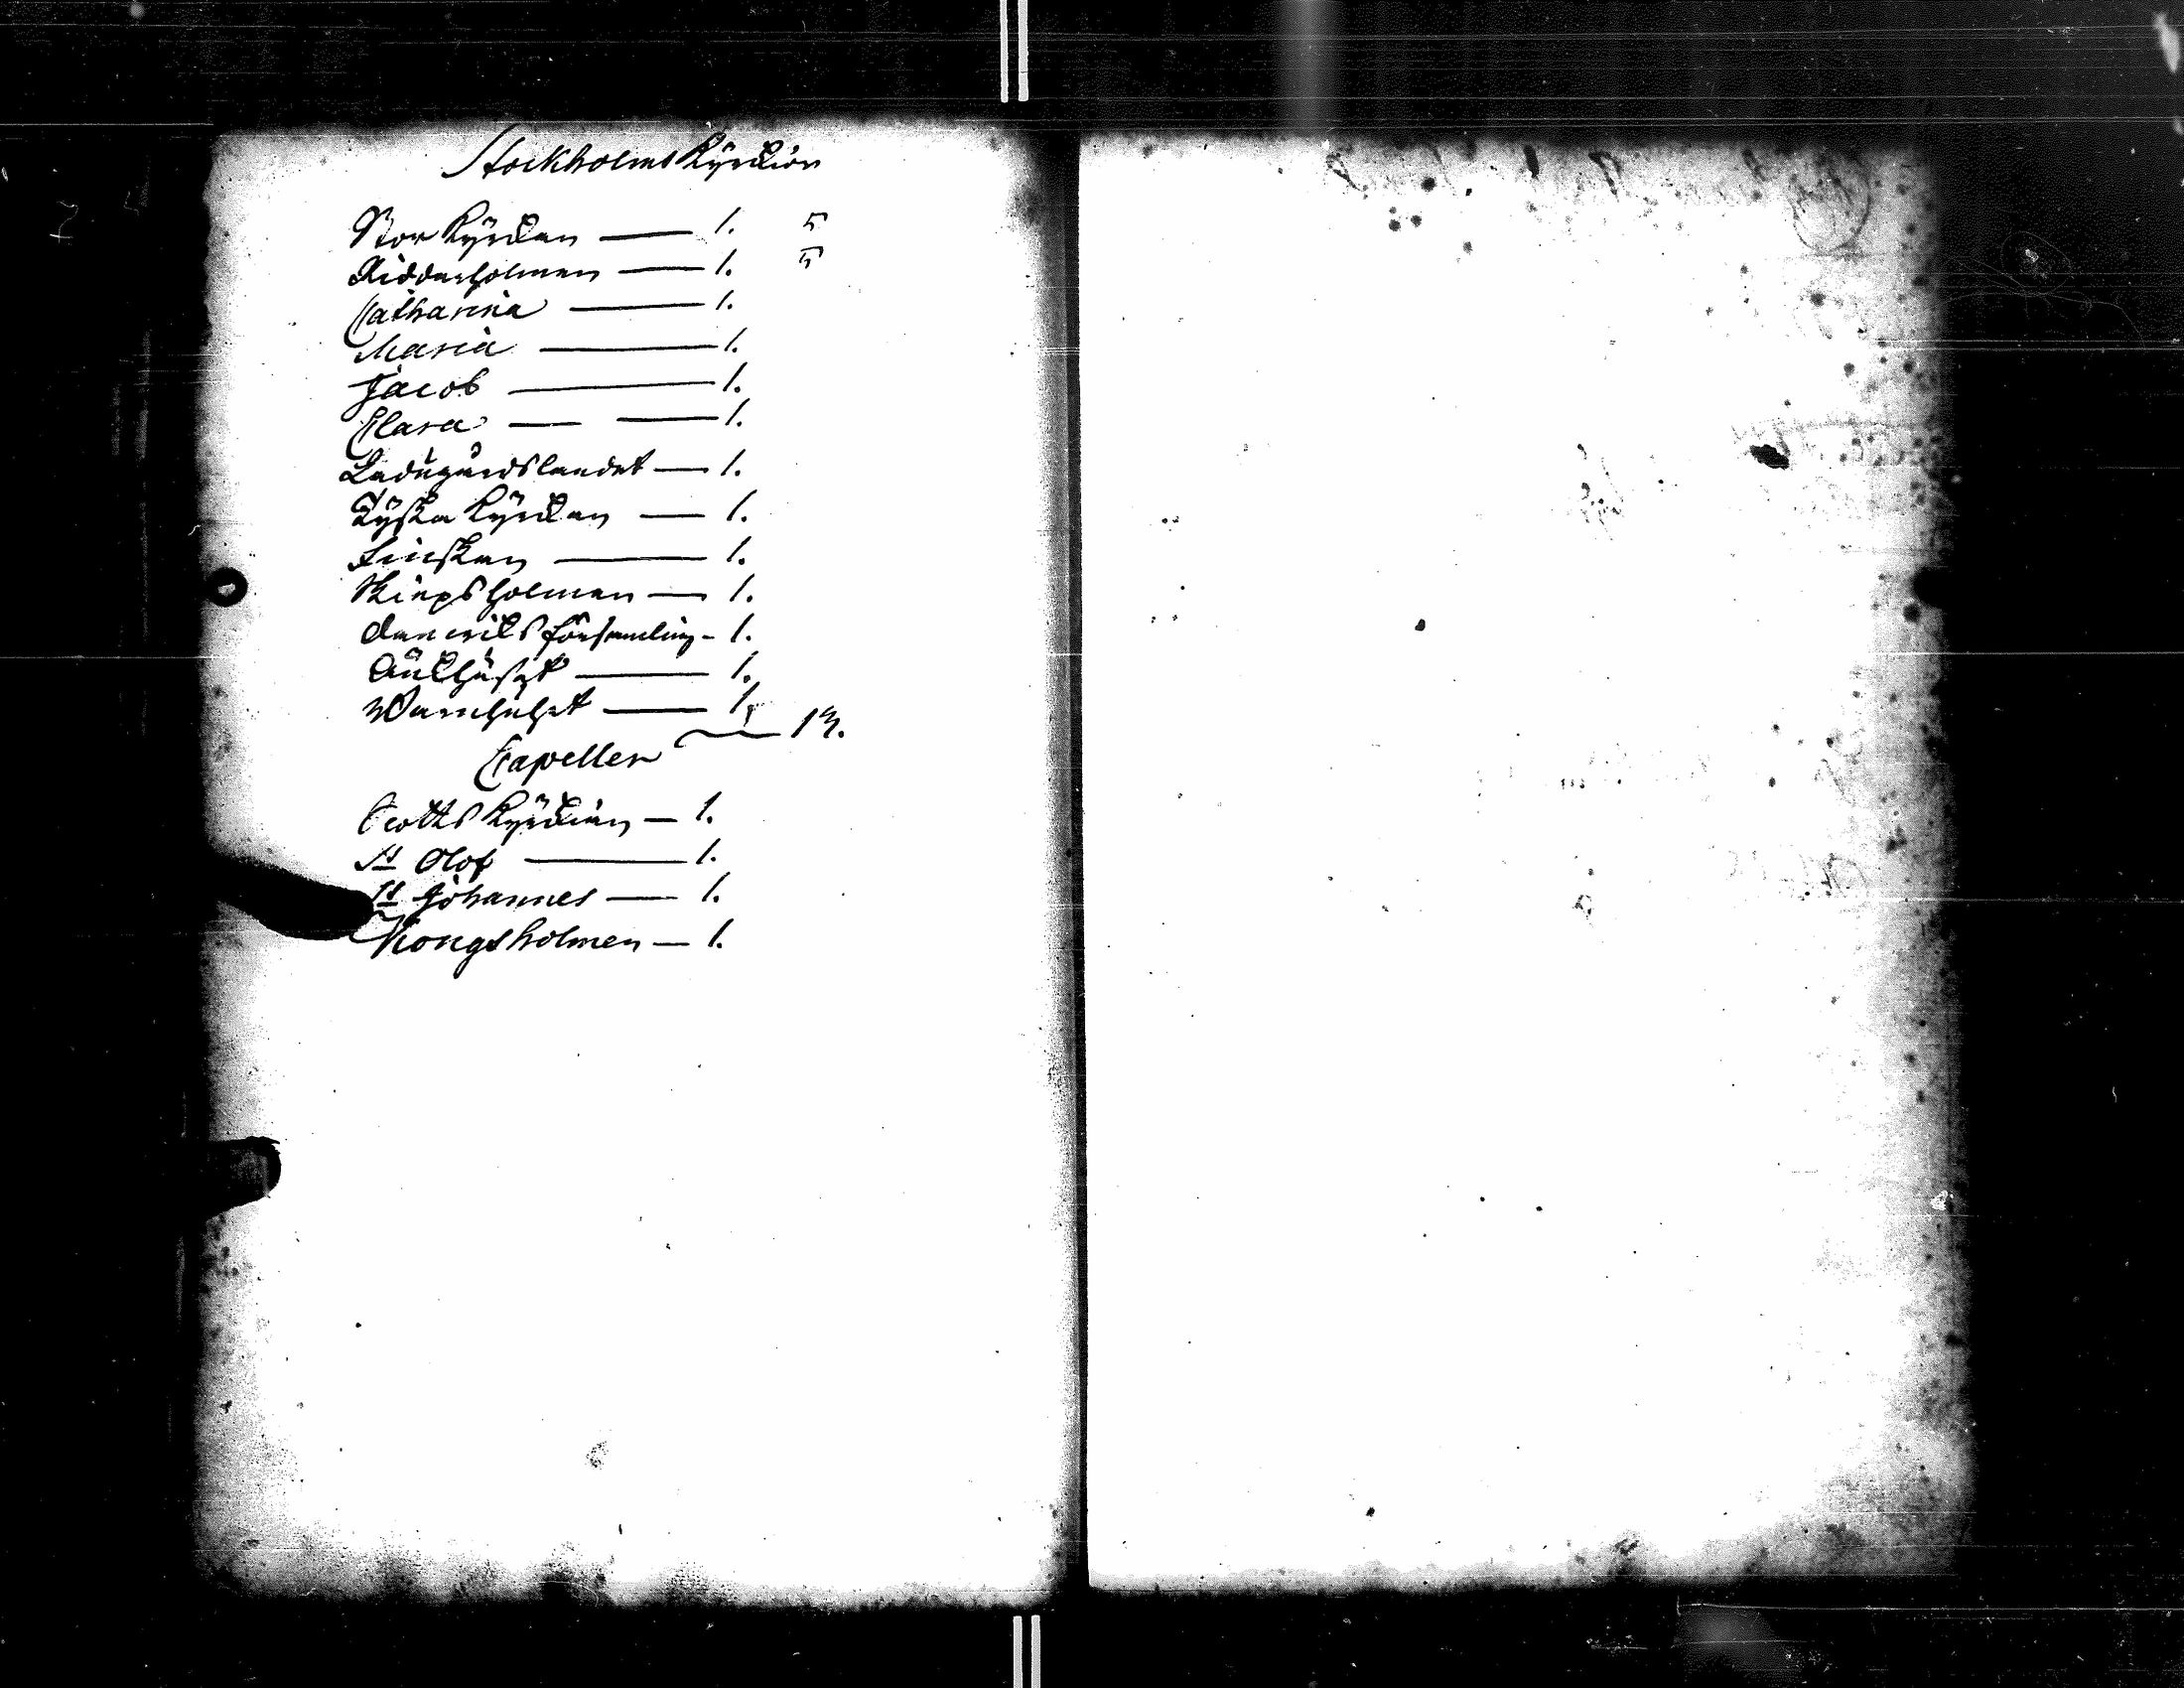 Stockholms Kyrckior
Stor Kyrckan — 1. 5
Riddarholmen — 1. 5
Catharina — 1.
Maria — 1.
Jacob — 1.
Clara — — 1.
Ladugårdslandet — 1.
Tyska Kyrckan — 1.
Finskan — 1.
Skiepsholmen — 1.
Danwiks församling - 1.
Barnhuset — 1.
— 13.
Capeller
Kyrckian — 1.
St Olof — 1.
St Johannes — 1.
Kongsholmen — 1.